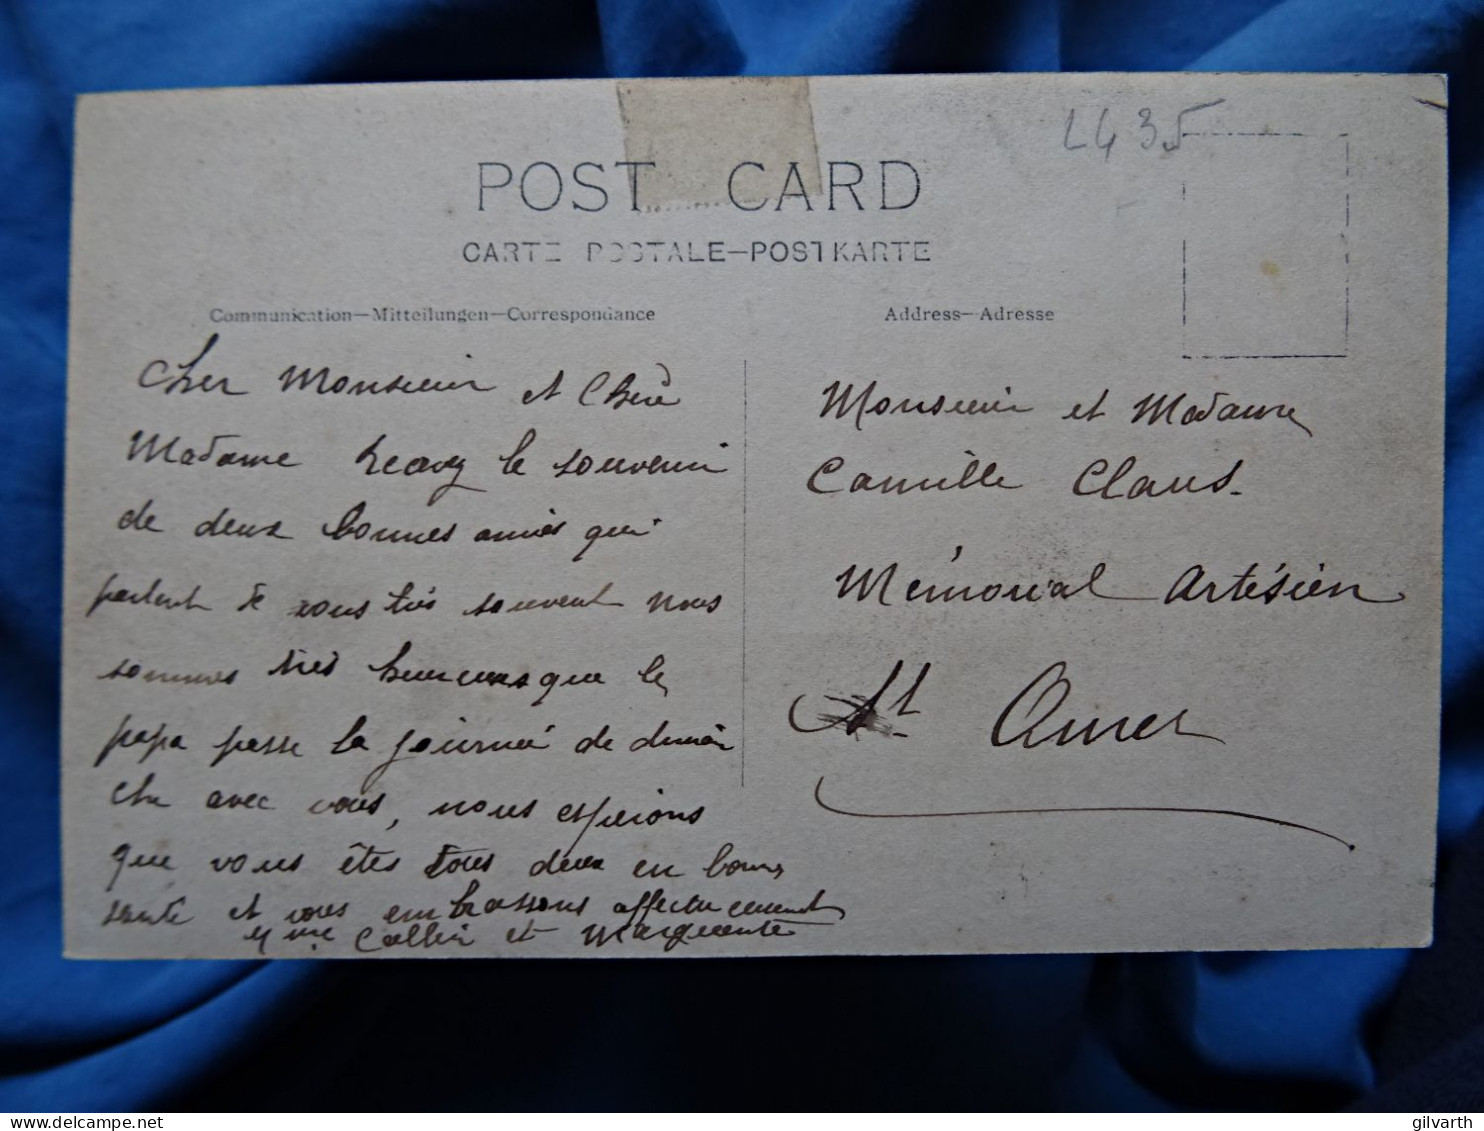 L435
POST CARD
CARTE POSTALE—POSTKARTE
Communication—Mitteilungen—Correspondance
Address—Adresse
Cher Monsieur et Chère
Madame Recevez le souvenir
de deux bonnes amies qui
parlent de vous très souvent nous
sommes très heureuses que le
papa passe la journée de diman
che avec vous, nous espérons
que vous êtes tous deux en bonne
santé et vous embrassons affectueusement
Mme et Marguerite
Monsieur et Madame
Camille Claus.
Mémorial Artésien
St Omer
delcampe.net
gilvarth